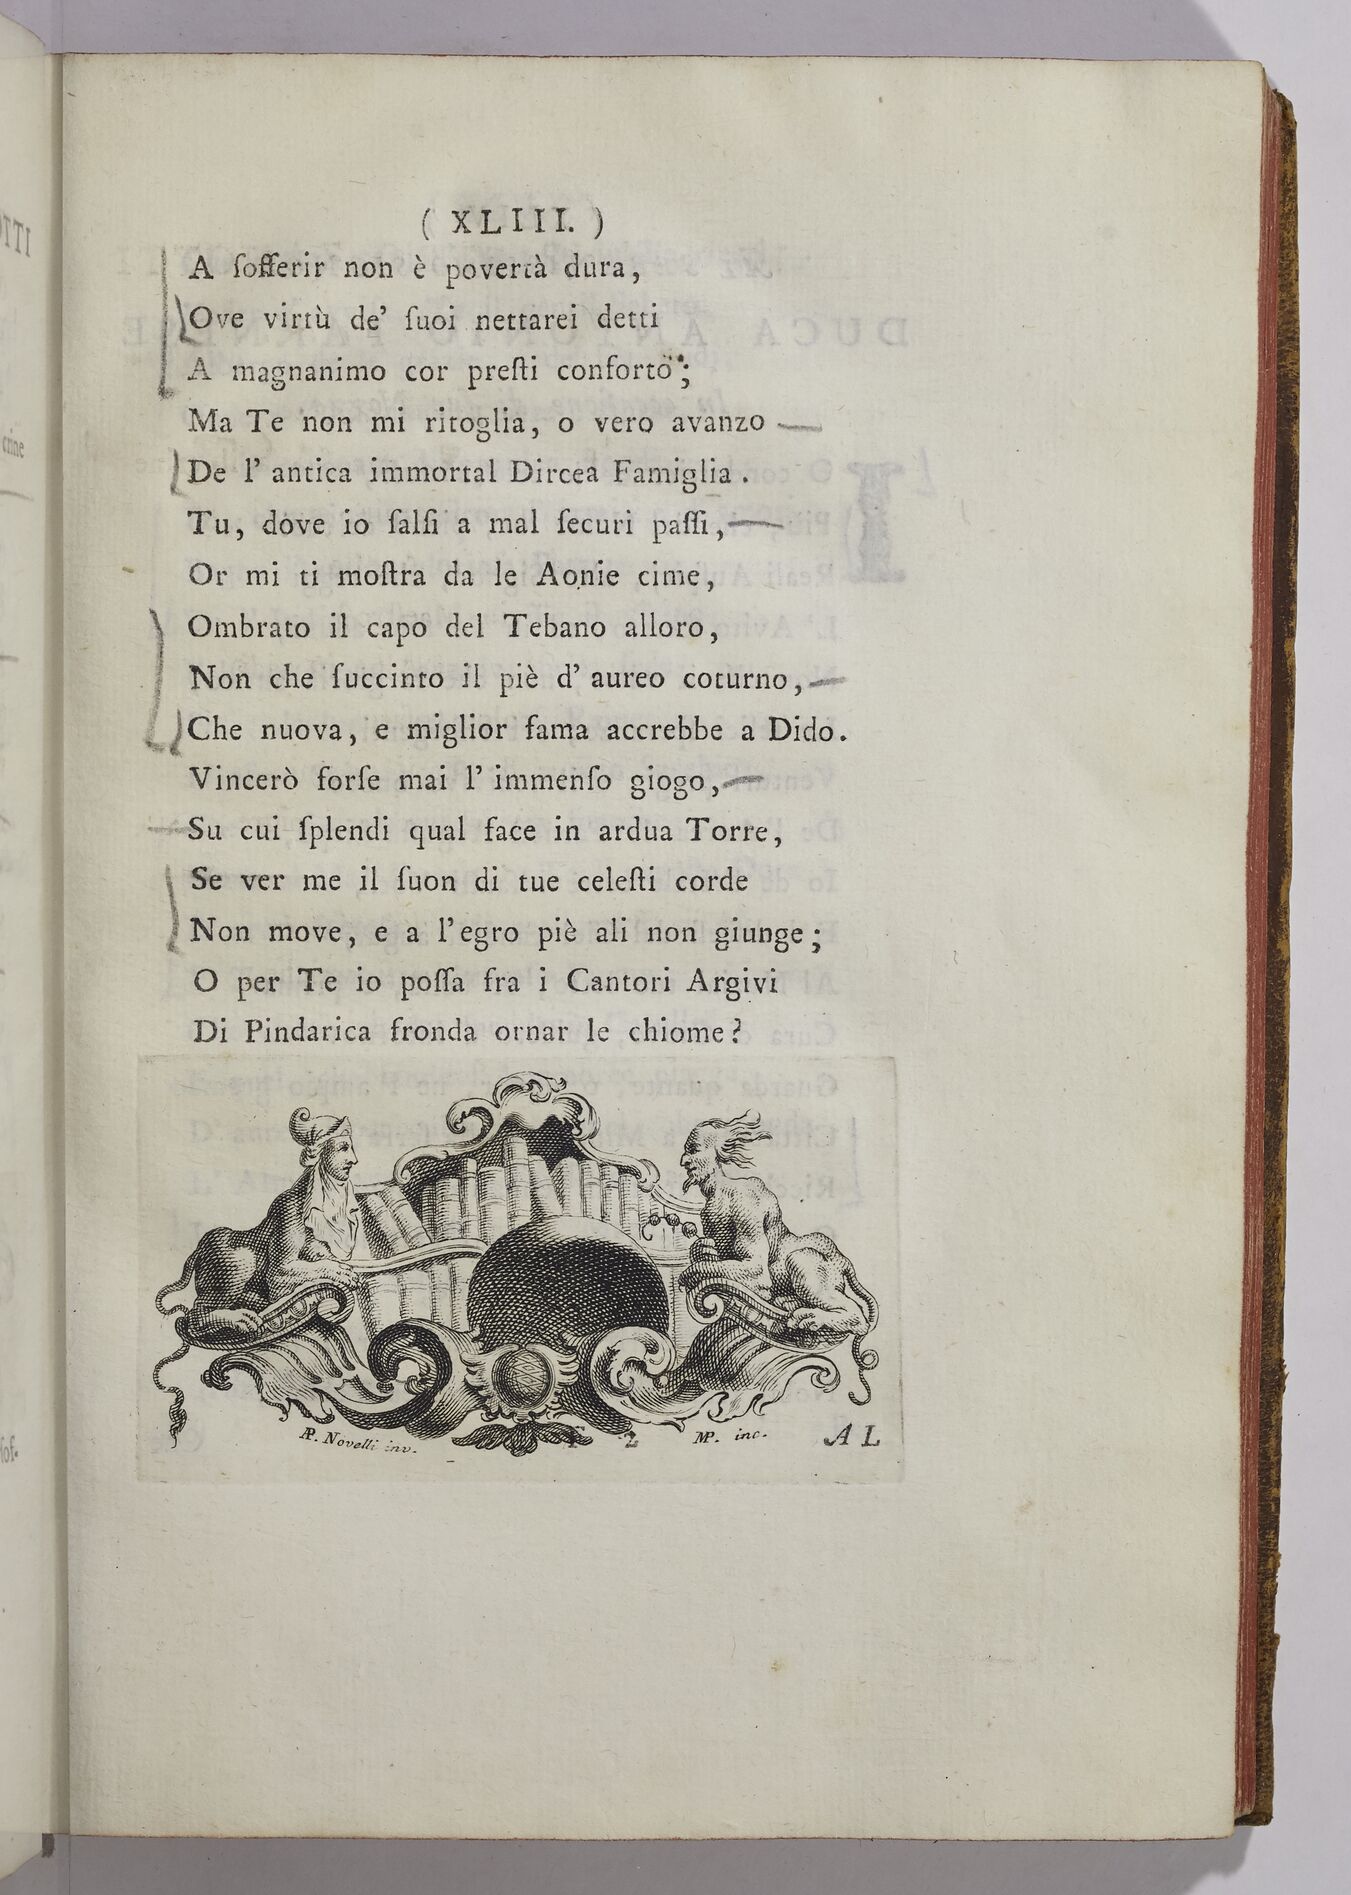 ( XLIII. )
A ſofferir non è povertà dura,
Ove virtù de' ſuoi nettarei detti
A magnanimo cor preſti conforto;
Ma Te non mi ritoglia, o vero avanzo
De l' antica immortal Dircea Famiglia.
Tu, dove io ſalſi a mal ſecuri paſſi,
Or mi ti moſtra da le Aonie cime,
Ombrato il capo del Tebano alloro,
Non che ſuccinto il piè d' aureo coturno,
Che nuova, e miglior fama accrebbe a Dido.
Vincerò forſe mai l' immenſo giogo,
Su cui ſplendi qual face in ardua Torre,
Se ver me il ſuon di tue celeſti corde
Non move, e a l'egro piè ali non giunge;
O per Te io poſſa fra i Cantori Argivi
Di Pindarica fronda ornar le chiome?
AP. Novelli inv. 2 MP. inc. AL